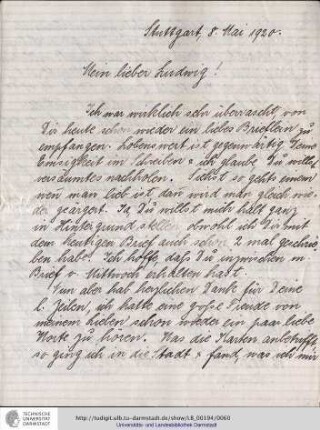 Stuttgart, 8. Mai 1920.
Mein lieber Ludwig!
Ich war wirklich sehr überrascht, von
Dir heute schon wieder ein liebes Brieflein zu
empfangen. Lobenswert ist gegenwärtig Deine
Emsigkeit im Schreiben & ich glaube, Du willst
versäumtes nachholen. Siehst so gehts einem
wen man lieb ist dan wird man gleich wie-
der geärgert. Ja Du willst mich halt ganz
in Hintergrund stellen, obwohl ich Dir mit
dem heutigen Brief auch schon 2 mal geschrie-
ben habe. Ich hoffe, dass Du inzwischen m.
Brief v. Mittwoch erhalten hast.
Nun aber hab herzlichen Dank für Deine
l. Zeilen, ich hatte eine große Freude von
meinem Lieben schon wieder ein paar liebe
Worte zu hören. Was die Karten anbetrifft
so ging ich in die Stadt & fand, was ich mir
TECHNISCHE
UNIVERSITÄT
DARMSTADT
http://tudigit.ulb.tu-darmstadt.de/show/LB_00194/0060
Universitäts- und Landesbibliothek Darmstadt